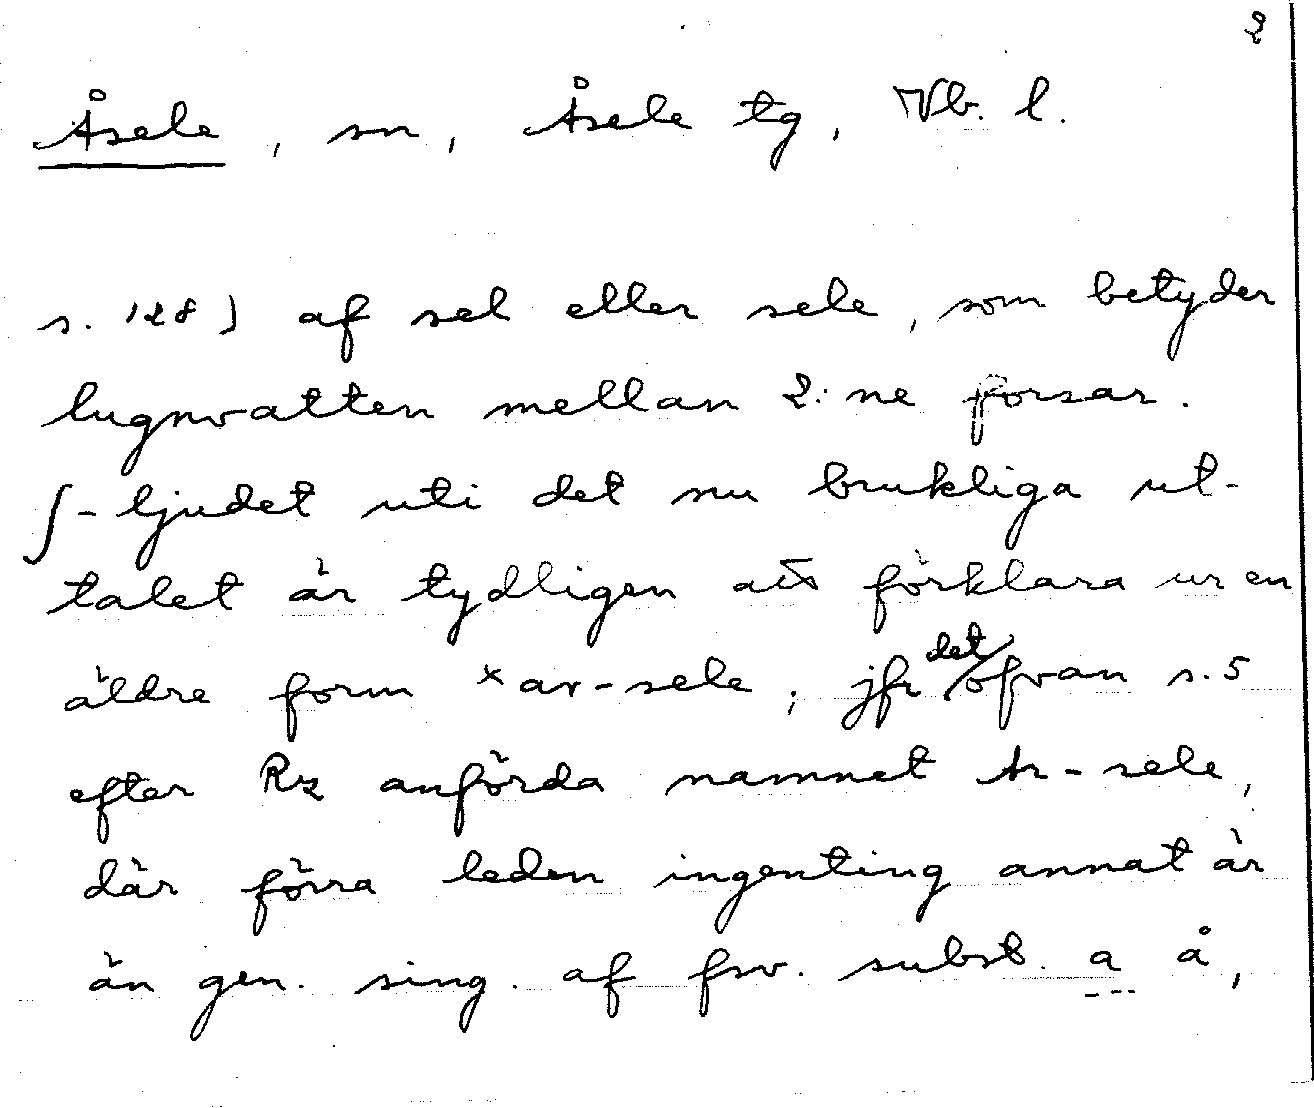 2
Åsele, sn, Åsele tg, Vb. l.
s. 128) af sel eller sele, som betyder
lugnvatten mellan 2:ne forsar.
ʃ-ljudet uti det nu brukliga ut-
talet är tydligen att förklara ur en
äldre form ×ar-sele; jfr det ofvan s. 5
efter Rz anförda namnet Ar-sele,
där förra leden ingenting annat är
än gen. sing. af fsv. subst. a å,